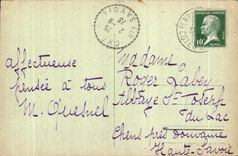 affectueuse
pensée à tous
M. Quesnel
Madame
Roger Labey
Abbaye St Joseph
du Lac
Chens près Douvaine
Haute-Savoie
10